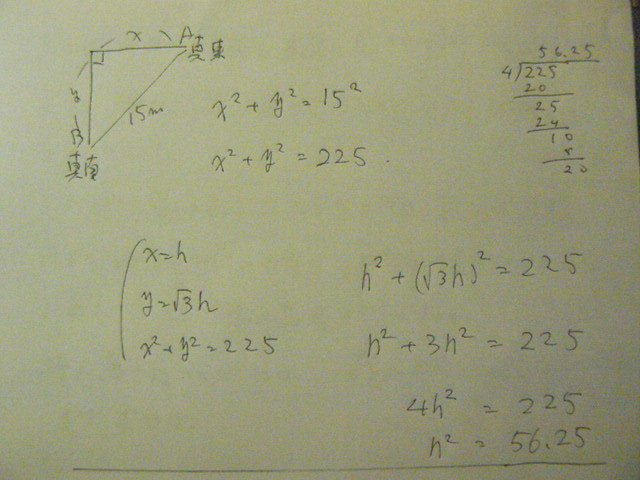 x A
真東
y
B
真南
15m
x² + y² = 15²
x² + y² = 225.
56.25
4)225
20
25
24
10
8
20
x = h
y = √3h
x² + y² = 225
h² + (√3h)² = 225
h² + 3h² = 225
4h² = 225
h² = 56.25